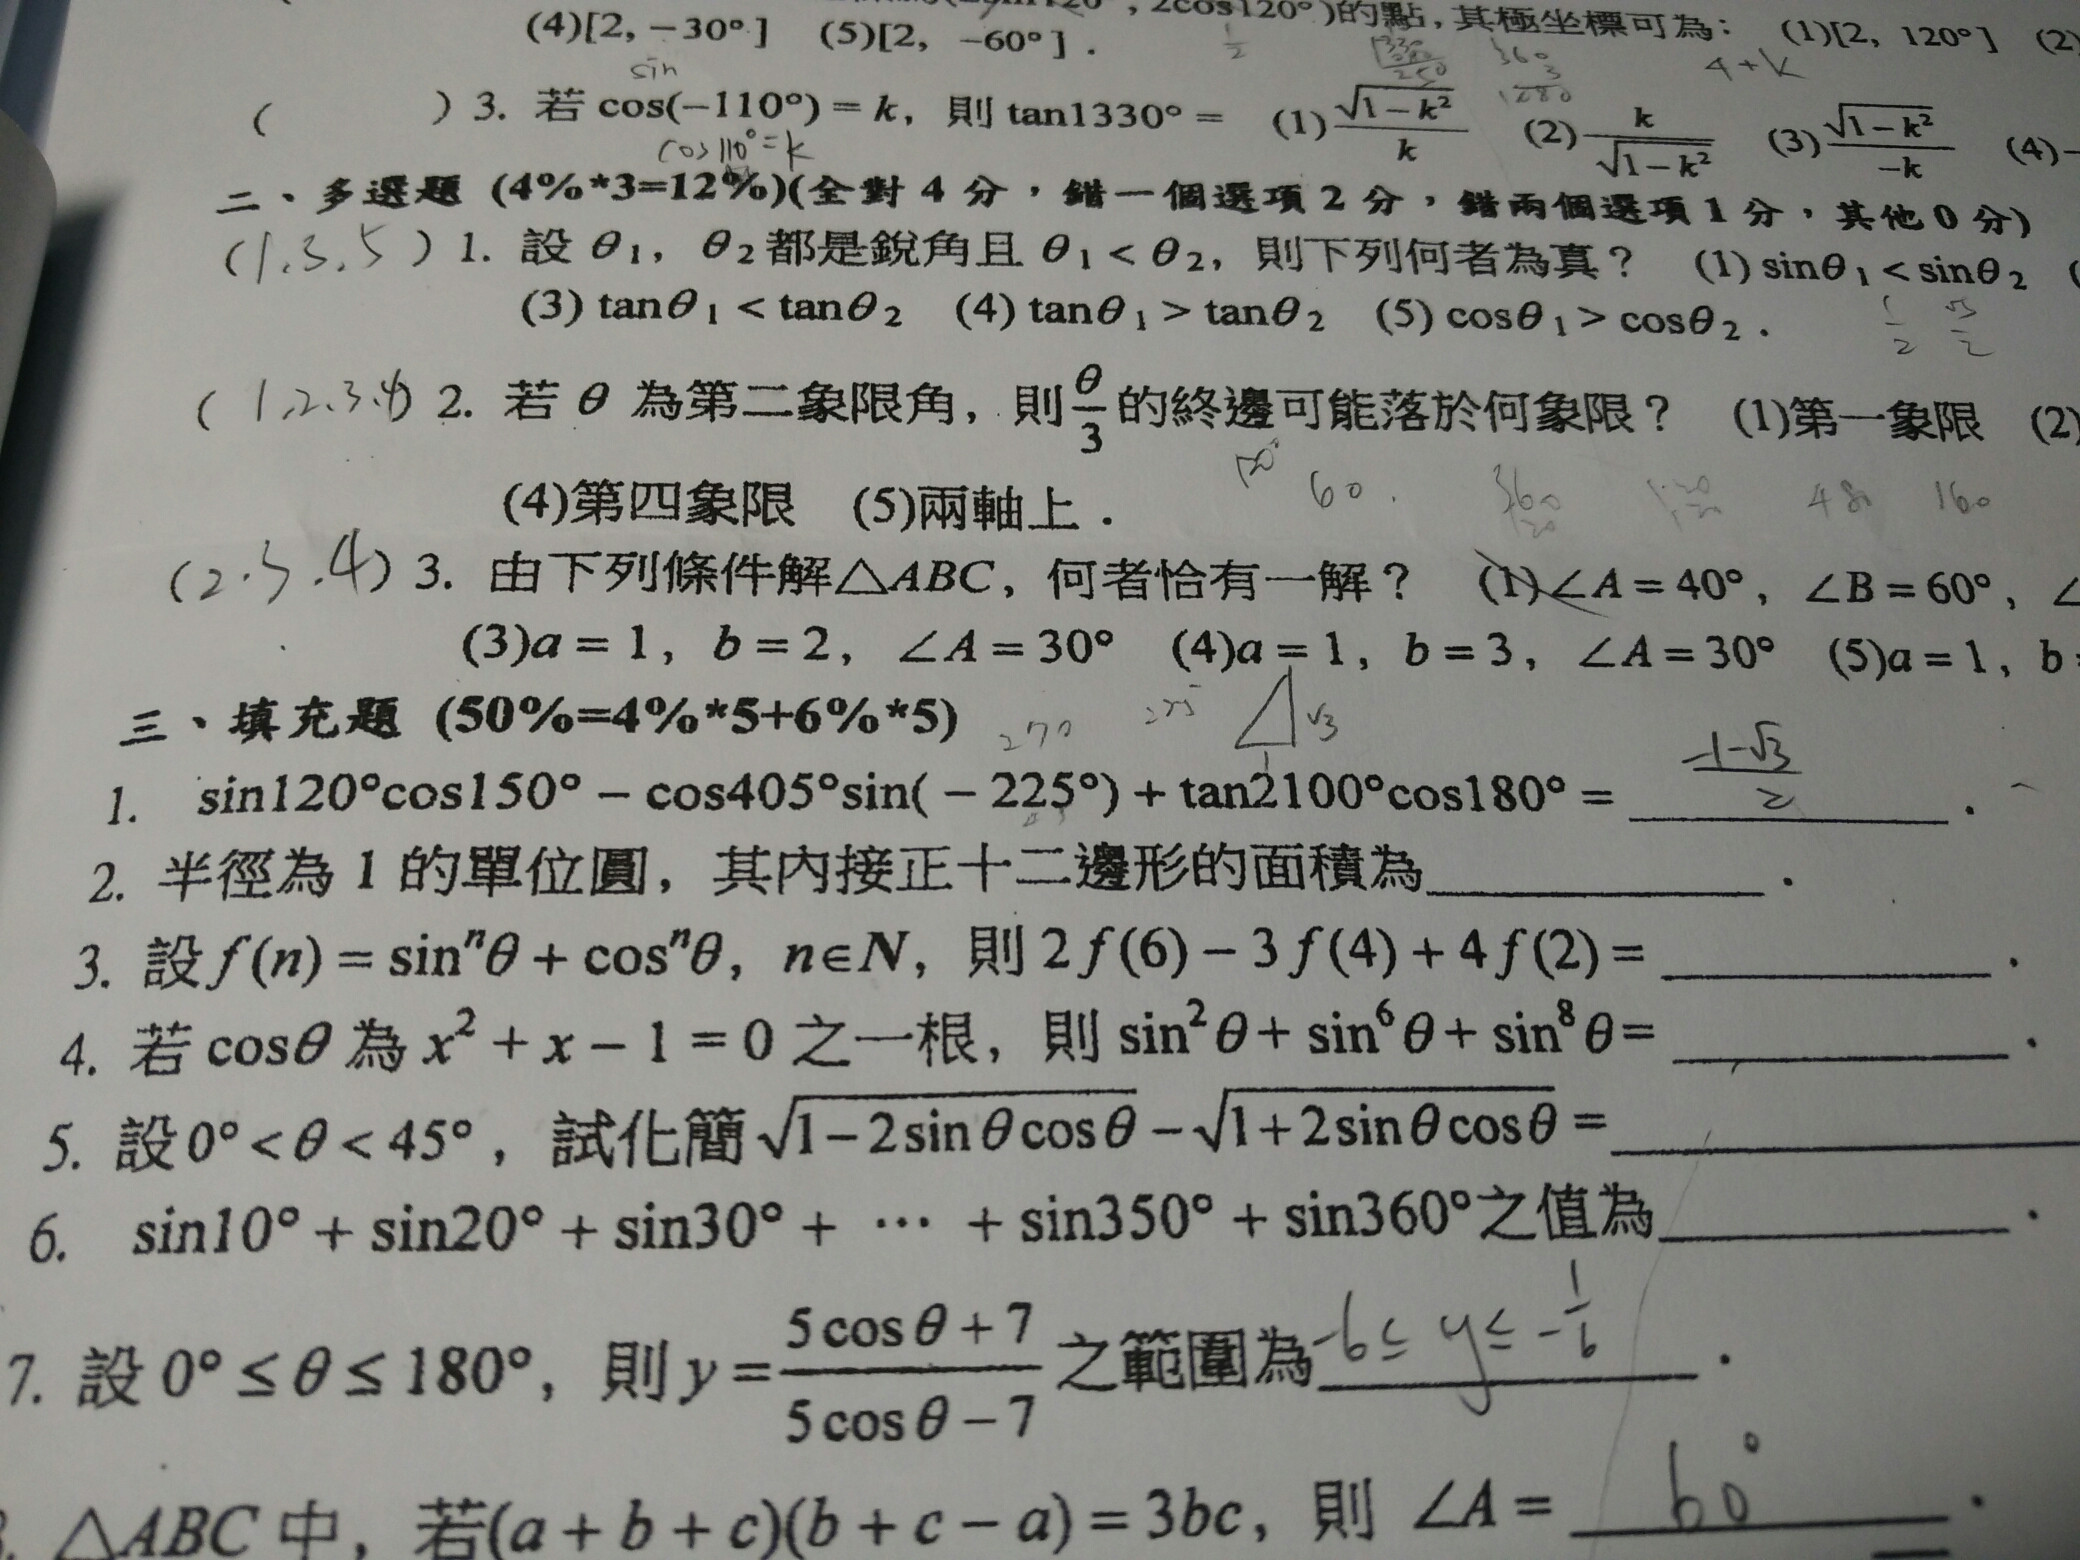 , 2cos120°)的點,其極坐標可為: (1)[2, 120°] (2)
(4)[2, −30°] (5)[2, −60°].
sin
4+k
( ) 3. 若 cos(−110°) = k, 則 tan1330° = (1) √(1−k²)/k (2) k/√(1−k²) (3) √(1−k²)/−k (4)−
cos110°=k
二、多選題 (4%*3=12%)(全對 4 分,錯一個選項 2 分,錯兩個選項 1 分,其他 0 分)
(1.3.5) 1. 設 θ₁, θ₂都是銳角且 θ₁ < θ₂, 則下列何者為真? (1) sinθ₁ < sinθ₂ (
(3) tanθ₁ < tanθ₂ (4) tanθ₁ > tanθ₂ (5) cosθ₁ > cosθ₂.
1/2 √3/2
(1.2.3.4) 2. 若 θ 為第二象限角, 則 θ/3 的終邊可能落於何象限? (1)第一象限 (2)
60. 360 480 160
(4)第四象限 (5)兩軸上.
(2.3.4) 3. 由下列條件解△ABC, 何者恰有一解? (1)∠A = 40°, ∠B = 60°, ∠
(3)a = 1, b = 2, ∠A = 30° (4)a = 1, b = 3, ∠A = 30° (5)a = 1, b
三、填充題 (50%=4%*5+6%*5)
270 225 √3 1
1. sin120°cos150° − cos405°sin( − 225°) + tan2100°cos180° = (−1−√3)/2.
2. 半徑為 1 的單位圓, 其內接正十二邊形的面積為________.
3. 設f(n) = sinⁿθ + cosⁿθ, n∈N, 則 2f(6) − 3f(4) + 4f(2) = ________.
4. 若 cosθ 為 x² + x − 1 = 0 之一根, 則 sin²θ + sin⁶θ + sin⁸θ = ________.
5. 設0° < θ < 45°, 試化簡√(1−2sinθcosθ) − √(1+2sinθcosθ) = ________
6. sin10° + sin20° + sin30° + ⋯ + sin350° + sin360°之值為________.
7. 設 0° ≤ θ ≤ 180°, 則 y = (5cosθ + 7)/(5cosθ − 7) 之範圍為 −6 ≤ y ≤ −1/6.
△ABC 中, 若(a + b + c)(b + c − a) = 3bc, 則 ∠A = 60°.